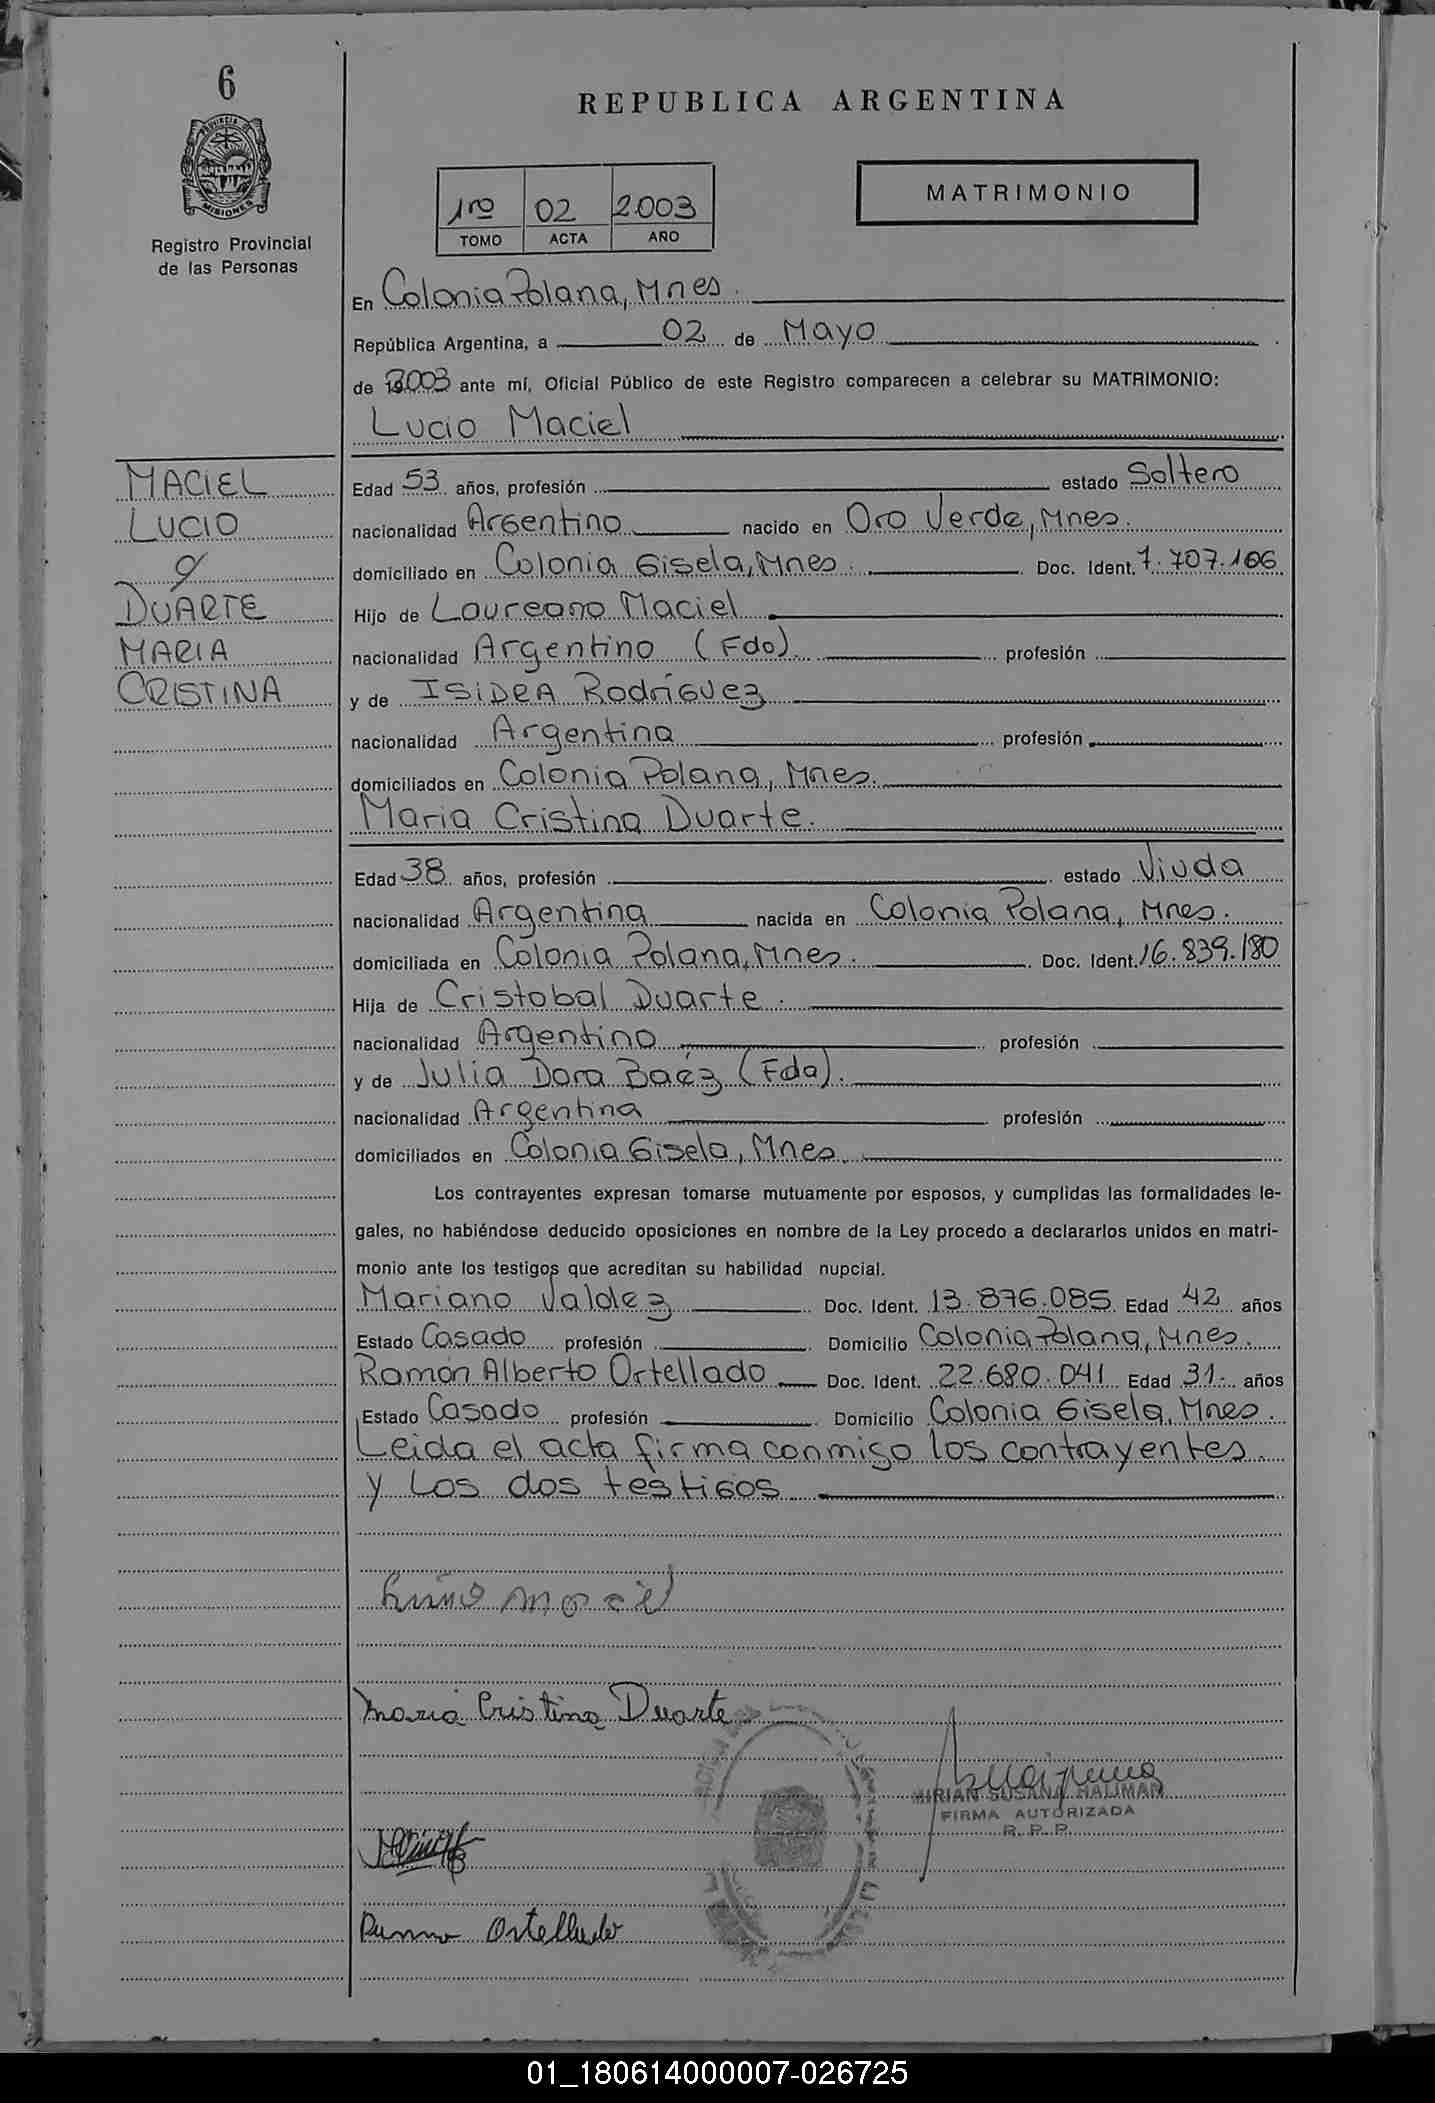 6
REPUBLICA ARGENTINA
PROVINCIA DE
MISIONES
Registro Provincial
de las Personas
1ro 02 2003
TOMO ACTA AÑO
MATRIMONIO
En Colonia Polana, Mnes.
República Argentina, a 02 de Mayo
de 2003 ante mí, Oficial Público de este Registro comparecen a celebrar su MATRIMONIO:
Lucio Maciel
MACIEL
LUCIO
y
DUARTE
MARIA
CRISTINA
Edad 53 años, profesión estado Soltero
nacionalidad Argentino nacido en Oro Verde, Mnes.
domiciliado en Colonia Gisela, Mnes. Doc. Ident. 7.707.106
Hijo de Laureano Maciel
nacionalidad Argentino (Fdo) profesión
y de ISIDRA Rodríguez
nacionalidad Argentina profesión
domiciliados en Colonia Polana, Mnes.
Maria Cristina Duarte.
Edad 38 años, profesión estado Viuda
nacionalidad Argentina nacida en Colonia Polana, Mnes.
domiciliada en Colonia Polana, Mnes. Doc. Ident. 16.839.180
Hija de Cristobal Duarte.
nacionalidad Argentino profesión
y de Julia Dora Baéz (Fda).
nacionalidad Argentina profesión
domiciliados en Colonia Gisela, Mnes
Los contrayentes expresan tomarse mutuamente por esposos, y cumplidas las formalidades le-
gales, no habiéndose deducido oposiciones en nombre de la Ley procedo a declararlos unidos en matri-
monio ante los testigos que acreditan su habilidad nupcial.
Mariano Valdez Doc. Ident. 13.876.085 Edad 42 años
Estado Casado profesión Domicilio Colonia Polana, Mnes.
Ramón Alberto Ortellado Doc. Ident. 22.680.041 Edad 31- años
Estado Casado profesión Domicilio Colonia Gisela, Mnes.
Leida el acta firma conmigo los contrayentes
y Los dos testigos
Lucio maciel
maria Cristina Duarte
MIRIAN SUSANA HALIMAN
FIRMA AUTORIZADA
R. P. P.
Ortellado
01_180614000007-026725